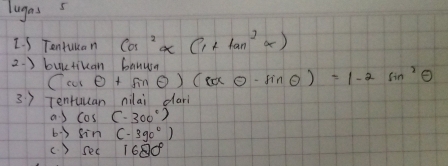 Tugas 5
1.) Tentukan Cos² α (1 + tan² α)
2.) buktikan bahwa
(cos θ + sin θ) (cos θ - sin θ) = 1-2 sin² θ
3.) Tentukan nilai dari
a.) cos (-300°)
b.) sin (-390°)
c.) sec 1680°